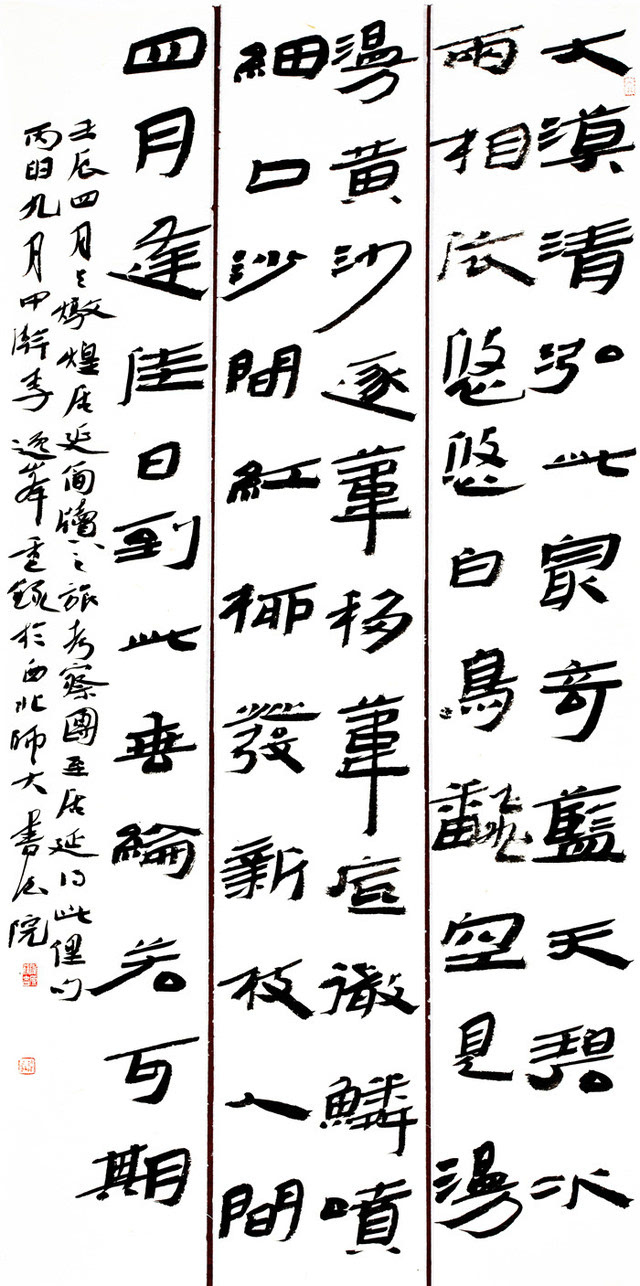 大漠清泓此冣奇藍天碧水
兩相依悠悠白鳥翻空見漫
漫黃沙逐葦移葦底澂鱗噴
細口沙間紅柳發新枝人間
四月逢佳日到此垂綸若可期
壬辰四月燉煌居延簡牘之旅考察團至居延得此俚句
丙申九月中澣李逸峯重錄於西北師大書法院